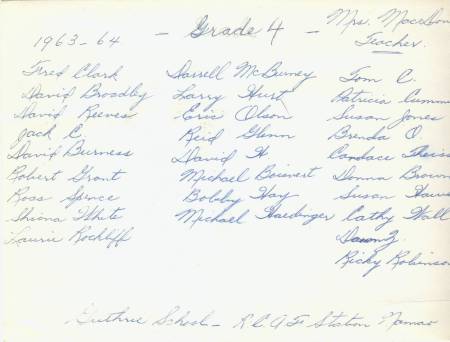 1963-64 - Grade 4 - Mrs. MacDon
Teacher.
Fred Clark
David Broadby
David Reeves
Jack C.
David Burness
Robert Grant
Ross Spence
Shiona White
Laurie Rockliff
Darrell McBurney
Larry Hurt
Eric Olson
Reid Glenn
David H
Michael Boisvert
Bobby Hay
Michael Haedinger
Tom C.
Patricia Cumm
Susan Jones
Brenda O.
Candace Theiss
Donna Brown
Susan
Cathy Wall
Dawn Z.
Ricky Robinson
Guthrie School - R C A F Station Namao